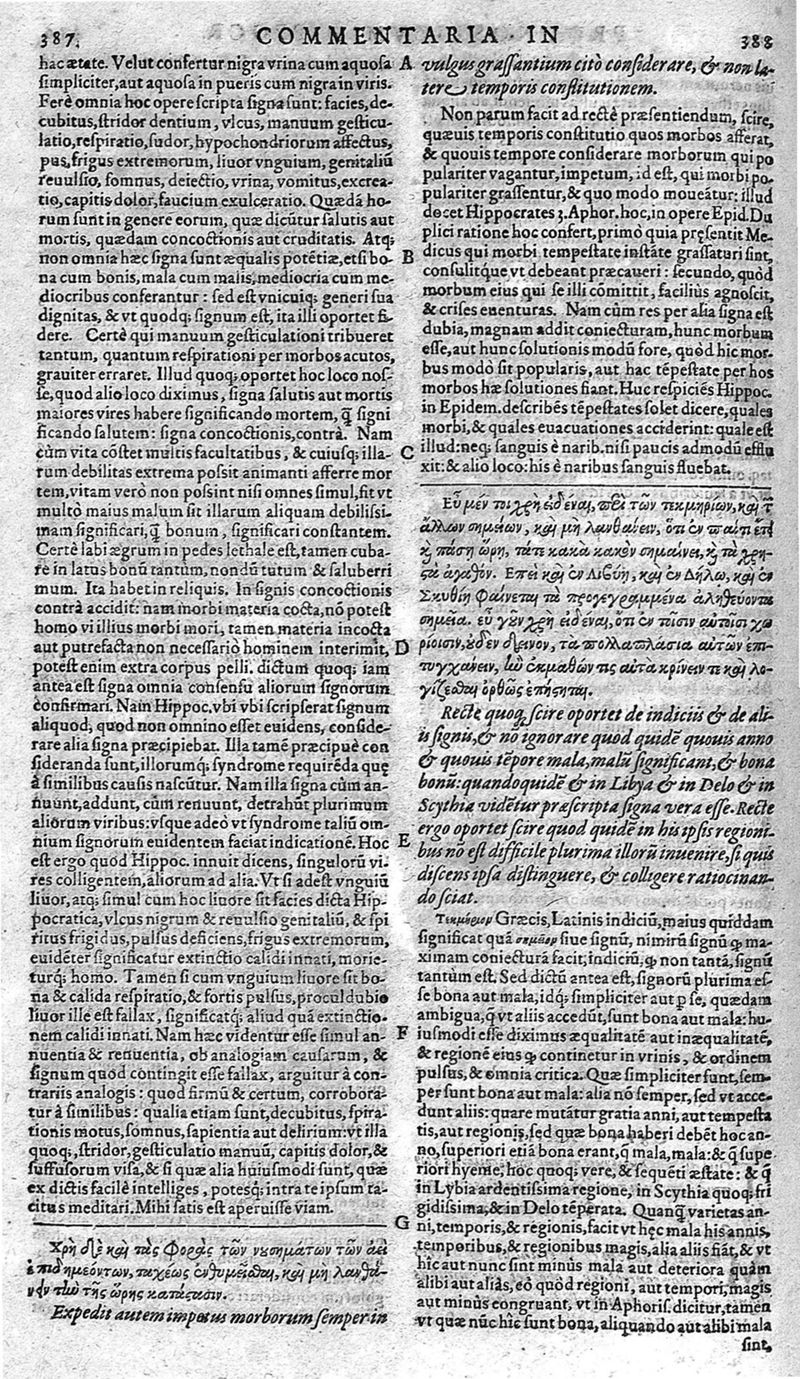 387.
COMMENTARIA · IN
388
hac ætate. Velut confertur nigra vrina cum aquosa
simpliciter, aut aquosa in pueris cum nigra in viris.
Ferè omnia hoc opere scripta signa sunt: facies, de-
cubitus, stridor dentium, vlcus, manuum gesticu-
latio, respiratio, sudor, hypochondriorum affectus,
pus, frigus extremorum, liuor vnguium, genitaliũ
reuulsio, somnus, deiectio, vrina, vomitus, excrea-
tio, capitis dolor, faucium exulceratio. Quædã ho-
rum sunt in genere eorum, quæ dicũtur salutis aut
mortis, quædam concoctionis aut cruditatis. Atq;
non omnia hæc signa sunt æqualis potẽtiæ, etsi bo-
na cum bonis, mala cum malis, mediocria cum me-
diocribus conferantur: sed est vnicuiq; generi sua
dignitas, & vt quodq; signum est, ita illi oportet fi-
dere. Certè qui manuum gesticulationi tribueret
tantum, quantum respirationi per morbos acutos,
grauiter erraret. Illud quoq; oportet hoc loco nos-
se, quod alio loco diximus, signa salutis aut mortis
maiores vires habere significando mortem, q̃ signi
ficando salutem: signa concoctionis, contrà. Nam
cùm vita cõstet multis facultatibus, & cuiusq; illa-
rum debilitas extrema possit animanti afferre mor
tem, vitam verò non possint nisi omnes simul, fit vt
multò maius malum sit illarum aliquam debilissi-
mam significari, q̃ bonum, significari constantem.
Certè labi ægrum in pedes lethale est, tamen cuba-
re in latus bonũ tantùm, nondũ tutum & saluberri
mum. Ita habet in reliquis. In signis concoctionis
contrà accidit: nam morbi materia cocta, nõ potest
homo vi illius morbi mori, tamen materia incocta
aut putrefacta non necessariò hominem interimit,
potest enim extra corpus pelli. dictum quoq; iam
antea est signa omnia consensu aliorum signorum
confirmari. Nam Hippoc. vbi vbi scripserat signum
aliquod, quod non omnino esset euidens, conside-
rare alia signa præcipiebat. Illa tamẽ præcipuè con
sideranda sunt, illorumq; syndrome requirẽda quę
à similibus causis nascũtur. Nam illa signa cùm an-
nuunt, addunt, cùm renuunt, detrahũt plurimum
aliorum viribus: vsque adeò vt syndrome taliũ om-
nium signorum euidentem faciat indicationẽ. Hoc
est ergo quòd Hippoc. innuit dicens, singulorũ vi-
res colligentem, aliorum ad alia. Vt si adest vnguiũ
liuor, atq; simul cum hoc liuore sit facies dicta Hip-
pocratica, vlcus nigrum & reuulsio genitaliũ, & spi
ritus frigidus, pulsus deficiens, frigus extremorum,
euidẽter significatur extinctio calidi innati, morie-
turq; homo. Tamen si cum vnguium liuore sit bo-
na & calida respiratio, & fortis pulsus, proculdubio
liuor ille est fallax, significatq; aliud quã extinctio-
nem calidi innati. Nam hæc videntur esse simul an-
nuentia & renuentia, ob analogiam causarum, &
signum quod contingit esse fallax, arguitur à con-
trariis analogis: quod firmũ & certum, corrobora-
tur à similibus: qualia etiam sunt, decubitus, spira-
tionis motus, somnus, sapientia aut delirium: vt illa
quoq;, stridor, gesticulatio manuũ, capitis dolor, &
suffusorum visa, & si quæ alia huiusmodi sunt, quæ
ex dictis facilè intelliges, potesq; intra te ipsum ta-
citus meditari. Mihi satis est aperuisse viam.
Χρὴ δὲ καὶ τὰς φορὰς τῶν νουσημάτων τῶν ἀεὶ
ἐπιδημεόντων, ταχέως ἐνθυμεῖσθαι, καὶ μὴ λανθά-
νειν τὴν τῆς ὥρης κατάστασιν.
Expedit autem impetus morborum semper in
A
B
C
D
E
F
G
vulgus grassantium citò considerare, & non la-
tere temporis constitutionem.
Non parum facit ad rectè præsentiendum, scire,
quæuis temporis constitutio quos morbos afferat,
& quouis tempore considerare morborum qui po
pulariter vagantur, impetum, id est, qui morbi po-
pulariter grassentur, & quo modo moueãtur: illud
docet Hippocrates 3. Aphor. hoc, in opere Epid. Du
plici ratione hoc confert, primò quia pręsentit Me-
dicus qui morbi tempestate instãte grassaturi sint,
consulitq́ue vt debeant præcaueri: secundo, quòd
morbum eius qui se illi cõmittit, faciliùs agnoscit,
& crises euenturas. Nam cùm res per alia signa est
dubia, magnam addit coniecturam, hunc morbum
esse, aut hunc solutionis modũ fore, quòd hic mor-
bus modò sit popularis, aut hac tẽpestate per hos
morbos hæ solutiones fiant. Huc respiciẽs Hippoc.
in Epidem. describẽs tẽpestates solet dicere, quales
morbi, & quales euacuationes acciderint: quale est
illud: neq; sanguis è narib. nisi paucis admodũ efflu
xit: & alio loco: his è naribus sanguis fluebat.
Εὖ μέν τοι χρὴ εἰδέναι, περὶ τῶν τεκμηρίων, καὶ τῶν
ἄλλων σημείων, καὶ μὴ λανθάνειν, ὅτι ἐν παντὶ ἔτει
καὶ πάσῃ ὥρῃ, τά τε κακὰ κακὸν σημαίνει, καὶ τὰ χρη-
στὰ ἀγαθόν. Ἐπεὶ καὶ ἐν Λιβύῃ, καὶ ἐν Δήλῳ, καὶ ἐν
Σκυθίῃ φαίνεται τὰ προγεγραμμένα ἀληθεύοντα
σημεῖα. εὖ γοῦν χρὴ εἰδέναι, ὅτι ἐν τοῖσιν αὐτοῖσι χω
ρίοισιν, οὐδὲν δεινὸν, τὰ πολλαπλάσια αὐτῶν ἐπι-
τυγχάνειν, ἢν ἐκμαθών τις αὐτὰ κρίνειν τε καὶ λο-
γίζεσθαι ὀρθῶς ἐπίστηται.
Rectè quoq; scire oportet de indiciis & de ali-
is signis, & nõ ignorare quod quidẽ quouis anno
& quouis tẽpore mala, malũ significant, & bona
bonũ: quandoquidẽ & in Libya & in Delo & in
Scythia vidẽtur præscripta signa vera esse. Rectè
ergo oportet scire quod quidẽ in his ipsis regioni-
bus nõ est difficile plurima illorũ inuenire, si quis
discens ipsa distinguere, & colligere ratiocinan-
do sciat.
Τεκμήριον Græcis, Latinis indiciũ, maius quiddam
significat quã σημεῖον siue signũ, nimirũ signũ ꝙ ma-
ximam coniecturã facit, indiciũ, ꝙ non tantã, signũ
tantùm est. Sed dictũ antea est, signorũ plurima es-
se bona aut mala, idq; simpliciter aut p̱ se, quædam
ambigua, q̃ vt aliis accedũt, sunt bona aut mala: hu-
iusmodi esse diximus æqualitatẽ aut inæqualitatẽ,
& regionẽ eius ꝙ continetur in vrinis, & ordinem
pulsus, & omnia critica. Quæ simpliciter sunt, sem-
per sunt bona aut mala: alia nõ semper, sed vt acce-
dunt aliis: quare mutãtur gratia anni, aut tempesta
tis, aut regionis, sed quæ bona haberi debẽt hoc an-
no, superiori etiã bona erant, q̃ mala, mala: & q̃ supe
riori hyeme, hoc quoq; vere, & sequẽti æstate: & q̃
in Lybia ardentissima regione, in Scythia quoq; fri
gidissima, & in Delo tẽperata. Quanq̃ varietas an-
ni, temporis, & regionis, facit vt hęc mala his annis,
temporibus, & regionibus magis, alia aliis fiãt, & vt
hîc aut nunc sint minùs mala aut deteriora quàm
alibi aut aliàs, eò quod regioni, aut tempori, magis
aut minùs congruant, vt in Aphoris. dicitur, tamen
vt quæ nũc hîc sunt bona, aliquando aut alibi mala
sint,